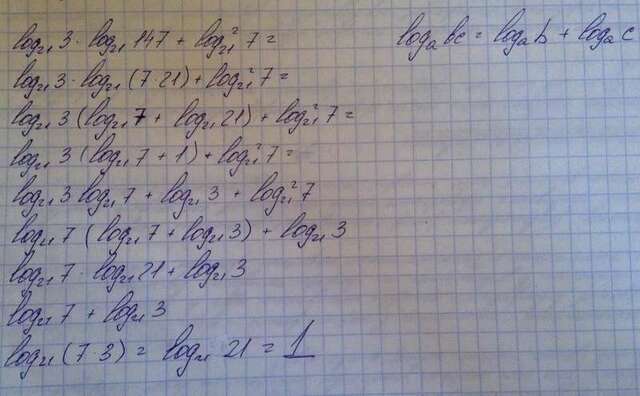 log₂₁ 3 · log₂₁ 147 + log²₂₁ 7 =
logₐ bc = logₐ b + logₐ c
log₂₁ 3 · log₂₁ (7·21) + log²₂₁ 7 =
log₂₁ 3 (log₂₁ 7 + log₂₁ 21) + log²₂₁ 7 =
log₂₁ 3 (log₂₁ 7 + 1) + log²₂₁ 7 =
log₂₁ 3 log₂₁ 7 + log₂₁ 3 + log²₂₁ 7
log₂₁ 7 (log₂₁ 7 + log₂₁ 3) + log₂₁ 3
log₂₁ 7 · log₂₁ 21 + log₂₁ 3
log₂₁ 7 + log₂₁ 3
log₂₁ (7·3) = log₂₁ 21 = 1